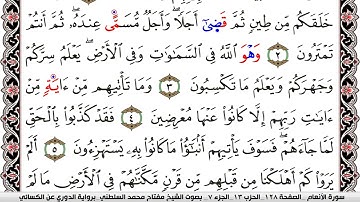 خَلَقَكُم مِّن طِينٖ ثُمَّ قَضَىٰٓ أَجَلٗاۖ وَأَجَلٞ مُّسَمًّى عِندَهُۥۖ ثُمَّ أَنتُمۡ
تَمۡتَرُونَ ٢ وَهۡوَ ٱللَّهُ فِي ٱلسَّمَٰوَٰتِ وَفِي ٱلۡأَرۡضِ يَعۡلَمُ سِرَّكُمۡ
وَجَهۡرَكُمۡ وَيَعۡلَمُ مَا تَكۡسِبُونَ ٣ وَمَا تَأۡتِيهِم مِّنۡ ءَايَةٖ مِّنۡ
ءَايَٰتِ رَبِّهِمۡ إِلَّا كَانُواْ عَنۡهَا مُعۡرِضِينَ ٤ فَقَدۡ كَذَّبُواْ بِٱلۡحَقِّ
لَمَّا جَآءَهُمۡ فَسَوۡفَ يَأۡتِيهِمۡ أَنۢبَٰٓؤُاْ مَا كَانُواْ بِهِۦ يَسۡتَهۡزِءُونَ ٥ أَلَمۡ
يَرَوۡاْ كَمۡ أَهۡلَكۡنَا مِن قَبۡلِهِم مِّن قَرۡنٖ مَّكَّنَّٰهُمۡ فِي ٱلۡأَرۡضِ مَا لَمۡ
سورة الأنعام . الصفحة ١٢٨ . الحزب ١٣ . الجزء ٧ . بصوت الشيخ مفتاح محمد السلطني . برواية الدوري عن الكسائي